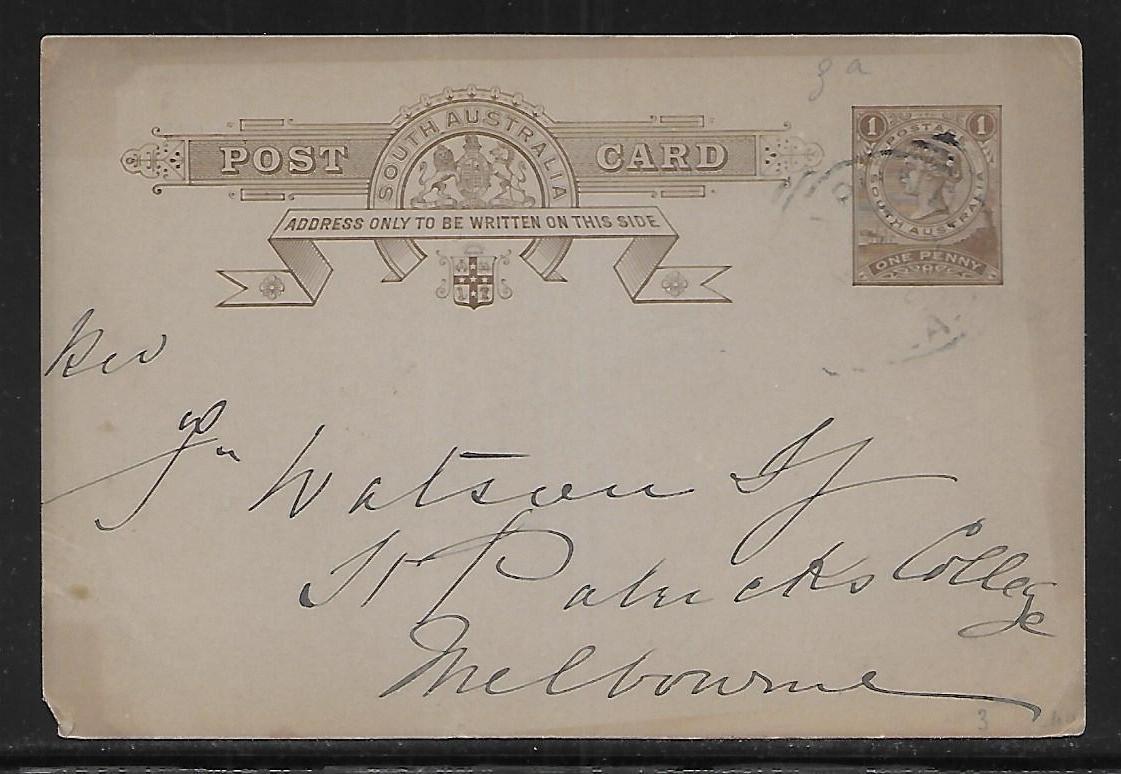 POST CARD
SOUTH AUSTRALIA
ADDRESS ONLY TO BE WRITTEN ON THIS SIDE
1 POSTAGE 1
SOUTH AUSTRALIA
ONE PENNY
Rev
Watson SJ
St Patricks College
Melbourne
3